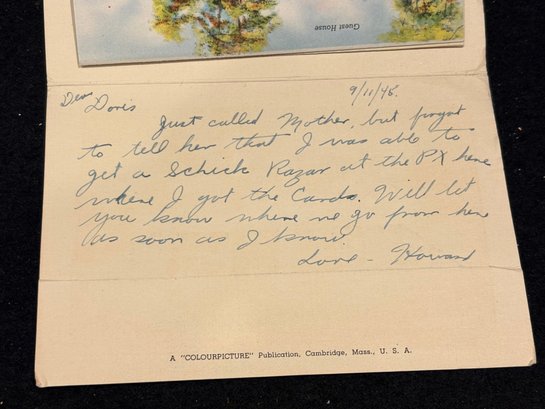 Guest House
9/11/48.
Dear Doris
Just called Mother, but forgot
to tell her that I was able to
get a Schick Razar at the PX here
where I got the Cards. Will let
you know where we go from here
as soon as I know.
Love - Howard
A "COLOURPICTURE" Publication, Cambridge, Mass., U. S. A.